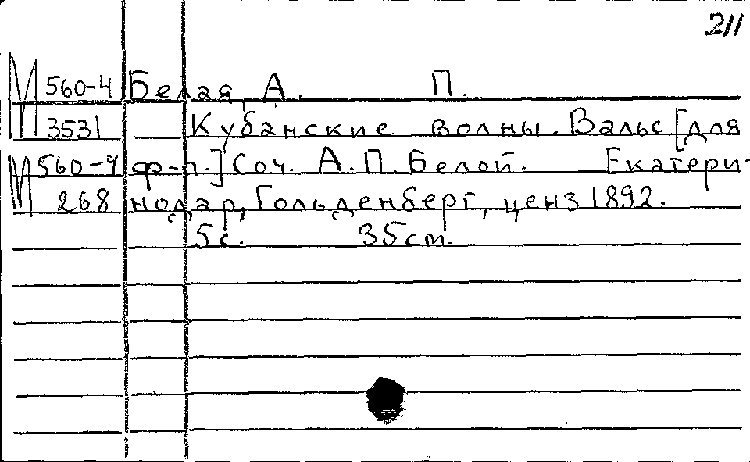 211
М 560-4 Белая, А. П.
3531 Кубанские волны. Вальс [для
М 560-4 ф-п.] Соч. А. П. Белой. Екатери-
268 нодар, Гольденберг, ценз 1892.
5 с. 35 cm.